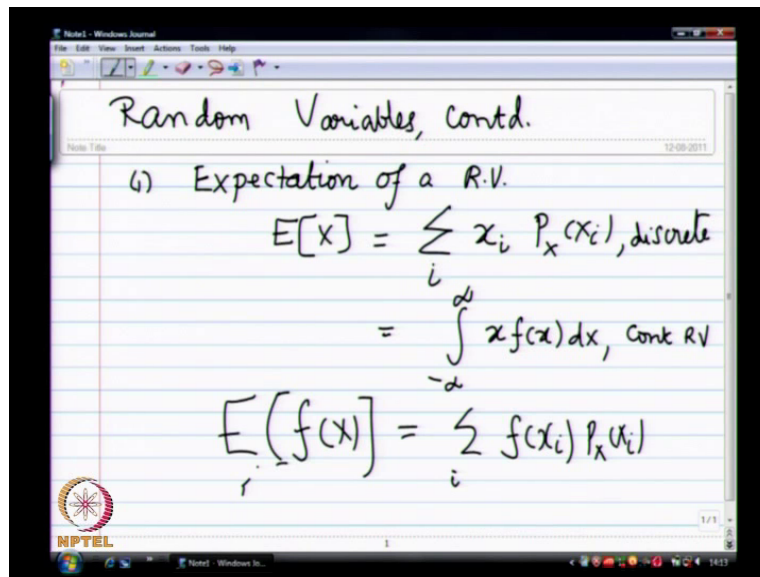 Note1 - Windows Journal
File Edit View Insert Actions Tools Help
Random Variables, contd.
Note Title
12-08-2011
(1) Expectation of a R.V.
E[X] = ∑ x_i P_X(x_i), discrete
i
= ∫_{-∞}^{∞} x f(x) dx, Cont RV
E[f(X)] = ∑ f(x_i) P_X(x_i)
i
1/1
NPTEL
1
Note1 - Windows Jo...
14:13